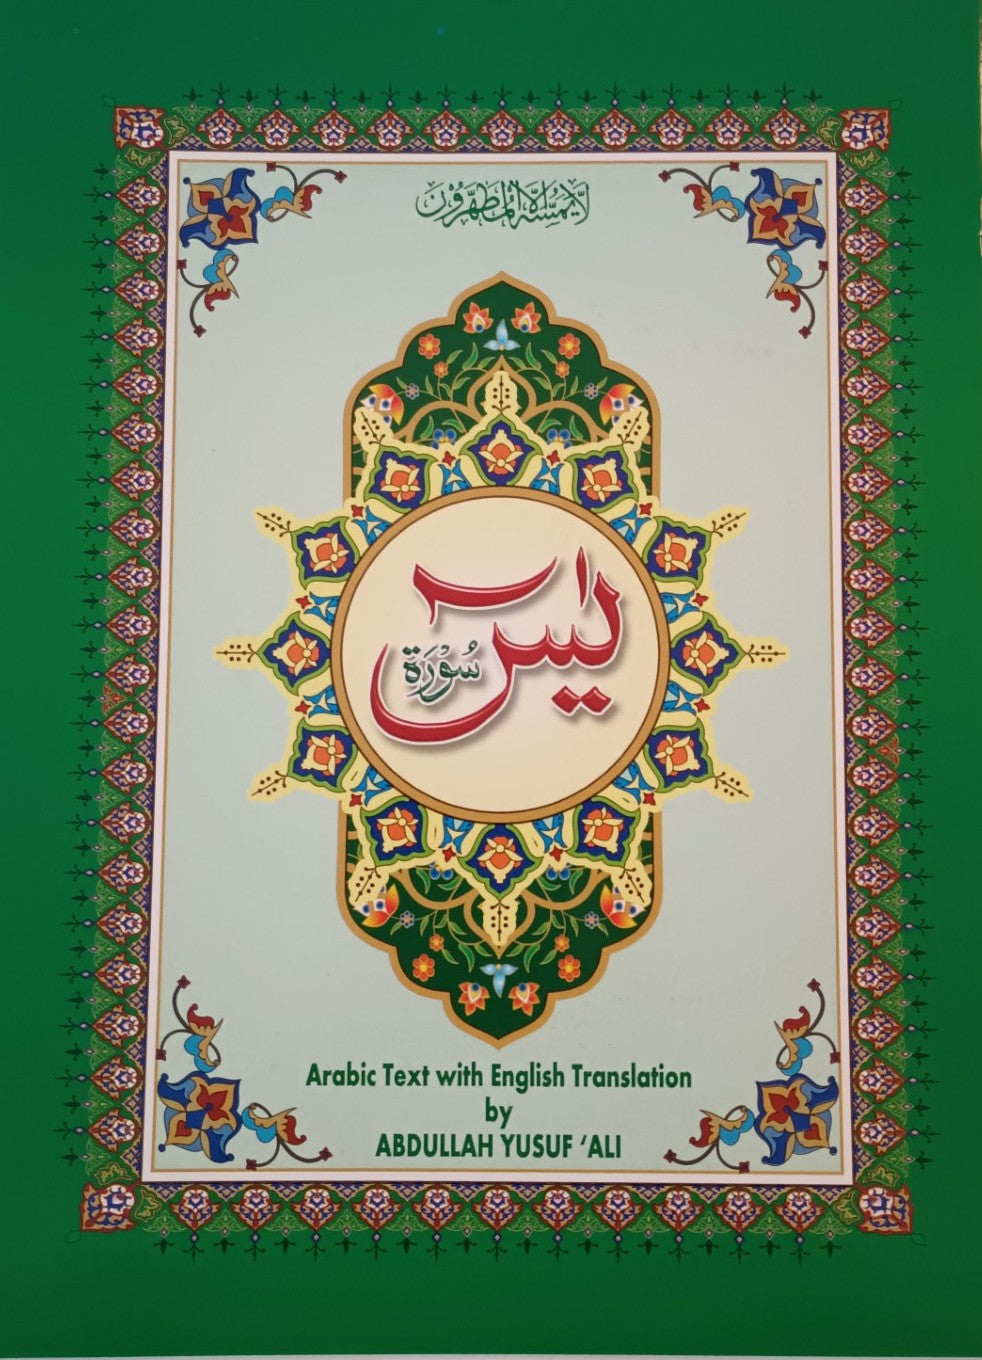 لَّا يَمَسُّهُ إِلَّا الْمُطَهَّرُونَ
سُورَة يٰس
Arabic Text with English Translation
by
ABDULLAH YUSUF ‘ALI